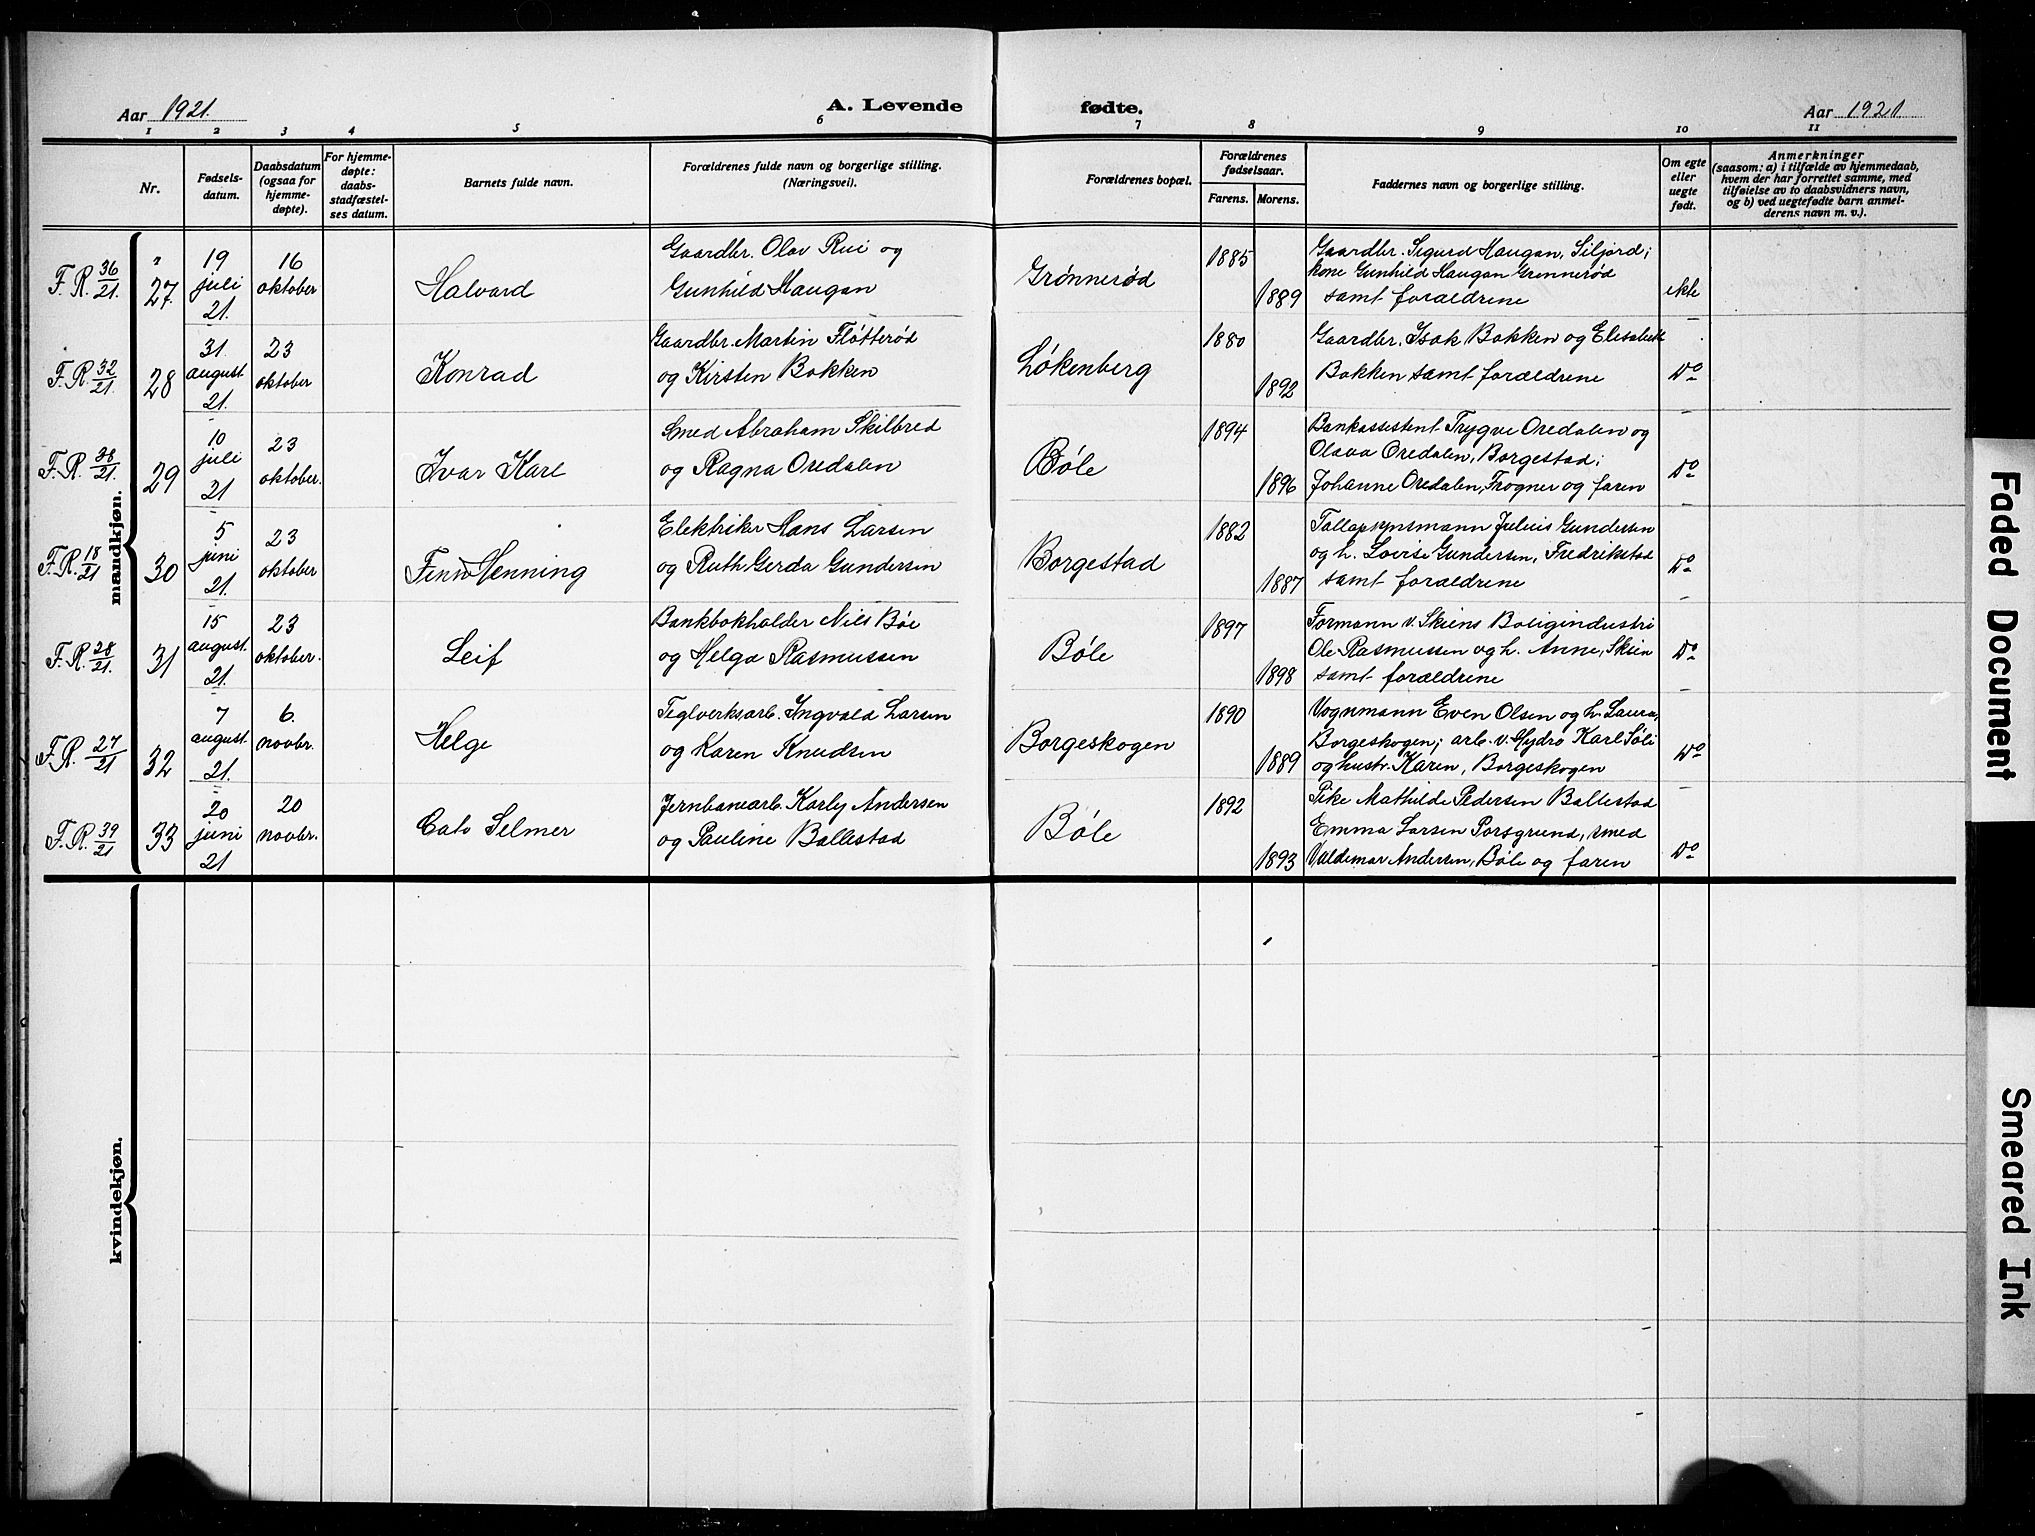 Aar 1921.
A. Levende fødte.
Aar 1921
1 2 3 4 5 6 7 8 9 10 11
Nr.
Fødsels-
datum.
Daabsdatum
(ogsaa for
hjemme-
døpte).
For hjemme-
døpte:
daabs-
stadfæstel-
ses datum.
Barnets fulde navn.
Forældrenes fulde navn og borgerlige stilling.
(Næringsvei).
Forældrenes bopæl.
Forældrenes
fødselsaar.
Farens. Morens.
Faddernes navn og borgerlige stilling.
Om egte
eller
uegte
født.
Anmerkninger
(saasom: a) i tilfælde av hjemmedaab,
hvem der har forrettet samme, med
tilføielse av to daabsvidners navn,
og b) ved uegtefødte barn anmel-
derens navn m. v.).
mandkjøn.
F. R. 36/21.
27.
19
juli
21.
16
oktober
Halvard
Gaardbr. Olav Rui og
Gunhild Haugan
Grønnerød
1885
1889
Gaardbr. Sigurd Haugan, Siljord;
kone Gunhild Haugan Grønnerød
samt forældrene
ekte
F. R. 32/21.
28
31.
august
21.
23
oktober
Konrad
Gaardbr. Martin Fløtterød
og Kirsten Bakken
Løkenberg
1880
1892
Gaardbr. Isak Bakken og Elisabeth
Bakken samt forældrene
Do
F. R. 38/21.
29
10
juli
21
23
oktober.
Ivar Karl
Smed Abraham Skilbred
og Ragna Oredalen
Bøle
1894
1896
Bankassistent Trygve Oredalen og
Olava Oredalen, Borgestad;
Johanne Oredalen, Frogner og faren
Do
F. R. 18/21
30
5
juni
21.
23
oktober
Finn Henning
Elektriker Hans Larsen
og Ruth Gerda Gundersen
Borgestad
1882
1887
Tallopsynsmann Julius Gundersen
og h. Lovise Gundersen, Fredrikstad
samt forældrene
Do
F. R. 28/21.
31
15
august.
21.
23
oktober.
Leif
Bankbokholder Nils Bøe
og Helga Rasmussen
Bøle
1897
1898
Formann v. Skiens Boligindustri
Ole Rasmussen og h. Anne, Skien
samt forældrene
Do
F. R. 27/21
32
7
august.
21.
6.
novbr.
Helge
Teglverksarb. Ingvald Larsen
og Karen Knudsen
Borgeskogen
1890
1889
Vognmann Even Olsen og h. Laura,
Borgeskogen; arb. v. Hydro Karl Søli
og hustr. Karen, Borgeskogen
Do
F. R. 39/21
33
20
juni
21
20
novbr.
Cato Selmer
Jernbanearb. Karly Andersen
og Pauline Ballestad
Bøle
1892
1893
Pike Mathilde Pedersen Ballestad
Emma Larsen Porsgrund, smed
Valdemar Andersen, Bøle og faren
Do
kvindekjøn.
Faded Document
Smeared Ink